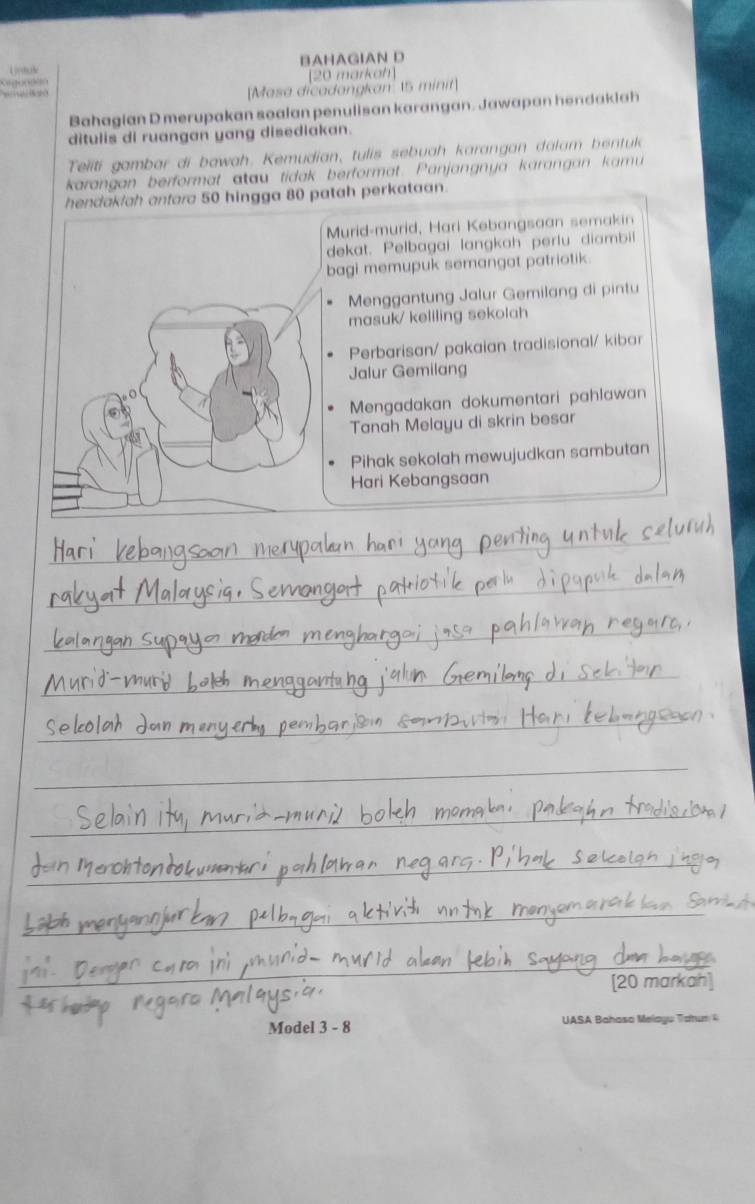 BAHAGIAN D
Untuk
[20 markah]
Kegunaan
[Masa dicadangkan: 15 minit]
Pemeriksa
Bahagian D merupakan soalan penulisan karangan. Jawapan hendaklah
ditulis di ruangan yang disediakan.
Teliti gambar di bawah. Kemudian, tulis sebuah karangan dalam bentuk
karangan berformat atau tidak berformat. Panjangnya karangan kamu
hendaklah antara 50 hingga 80 patah perkataan.
Murid-murid, Hari Kebangsaan semakin
dekat. Pelbagai langkah perlu diambil
bagi memupuk semangat patriotik.
• Menggantung Jalur Gemilang di pintu
masuk/ keliling sekolah
• Perbarisan/ pakaian tradisional/ kibar
Jalur Gemilang
• Mengadakan dokumentari pahlawan
Tanah Melayu di skrin besar
• Pihak sekolah mewujudkan sambutan
Hari Kebangsaan
Hari kebangsaan merupakan hari yang penting untuk seluruh
rakyat Malaysia. Semangat patriotik perlu dipupuk dalam
kalangan supaya menghargai jasa pahlawan negara.
Murid-murid boleh menggantung jalur Gemilang di sekitar
sekolah dan menyertai pembarisan Hari kebangsaan.
Selain itu, murid-murid boleh memakai pakaian tradisional
dan menonton dokumentari pahlawan negara. Pihak sekolah juga
menganjurkan pelbagai aktiviti untuk menyemarakkan
ini. Dengan cara ini, murid-murid akan lebih sayang dan bangga
terhadap negara Malaysia.
[20 markah]
Model 3 - 8
UASA Bahasa Melayu Tahun